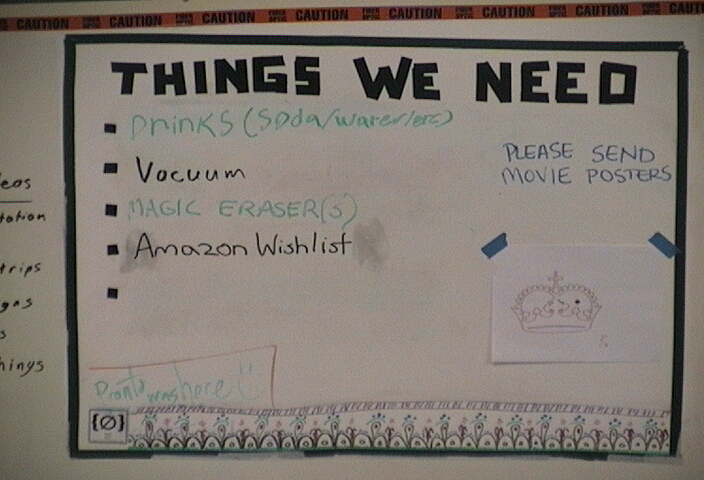 CAUTION CAUTION CAUTION CAUTION CAUTION CAUTION CAUTION CAUT
THINGS WE NEED
Drinks (Soda/water/etc)
Vacuum
MAGIC ERASER(S)
Amazon Wishlist
PLEASE SEND
MOVIE POSTERS
eos
tation
trips
gns
s
hings
Pronto was here
{Ø}